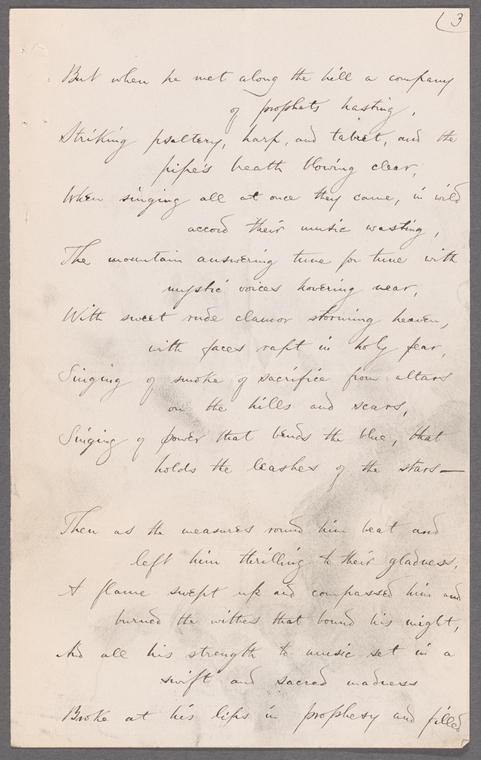 (3
But when he met along the hill a company
of prophets hasting,
Striking psaltery, harp, and tabret, and the
pipe's breath blowing clear,
When singing all at once they came, in wild
accord their music wasting,
The mountain answering tune for tune with
mystic voices hovering near,
With sweet rude clamor storming heaven,
with faces rapt in holy fear,
Singing of smoke of sacrifice from altars
on the hills and scars,
Singing of power that bends the blue, that
holds the leashes of the stars—
Then as the measures round him beat and
left him thrilling to their gladness,
A flame swept up and compassed him and
burned the withes that bound his might,
And all his strength to music set in a
swift and sacred madness
Broke at his lips in prophesy and filled